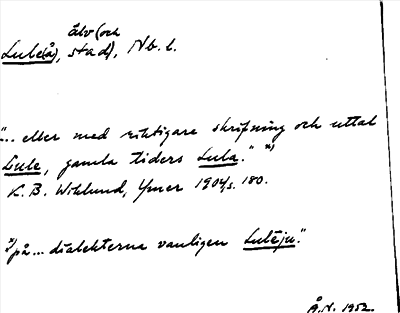 älv (och
Lule(å), stad), Nb. l.
"... eller med riktigare skrifning och uttal
Lule, gamla tiders Lula." 1)
K. B. Wiklund, Ymer 1904/s. 180.
1) på ... dialekterna vanligen Lulēju."
Å. N. 1952.